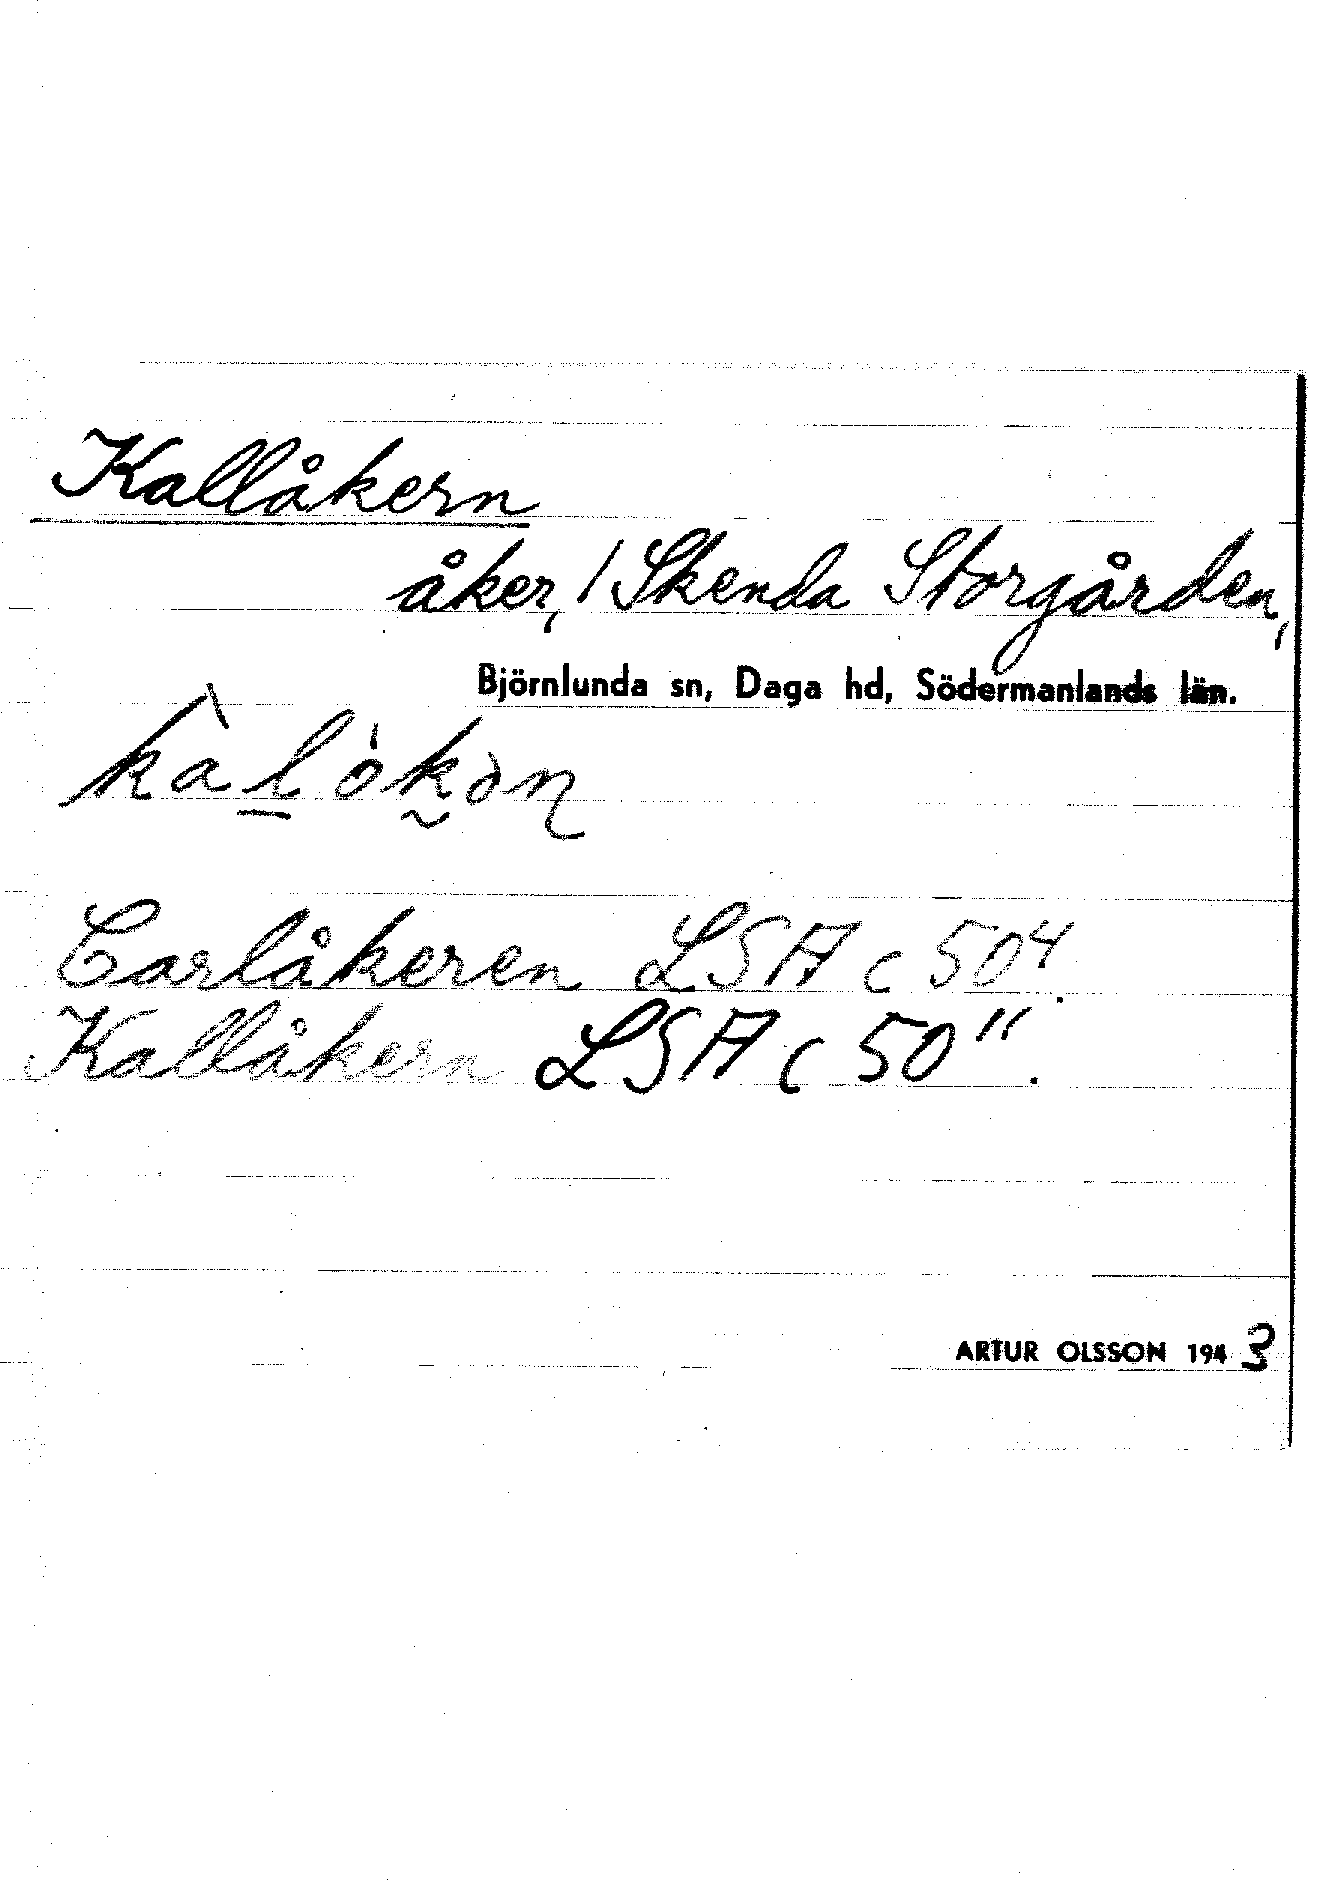 Kallåkern
åker, / Skenda Storgården,
Björnlunda sn, Daga hd, Södermanlands län.
Carlåkeren LSA c 50⁴.
Kallåkern LSA c 50¹¹.
ARTUR OLSSON 1943